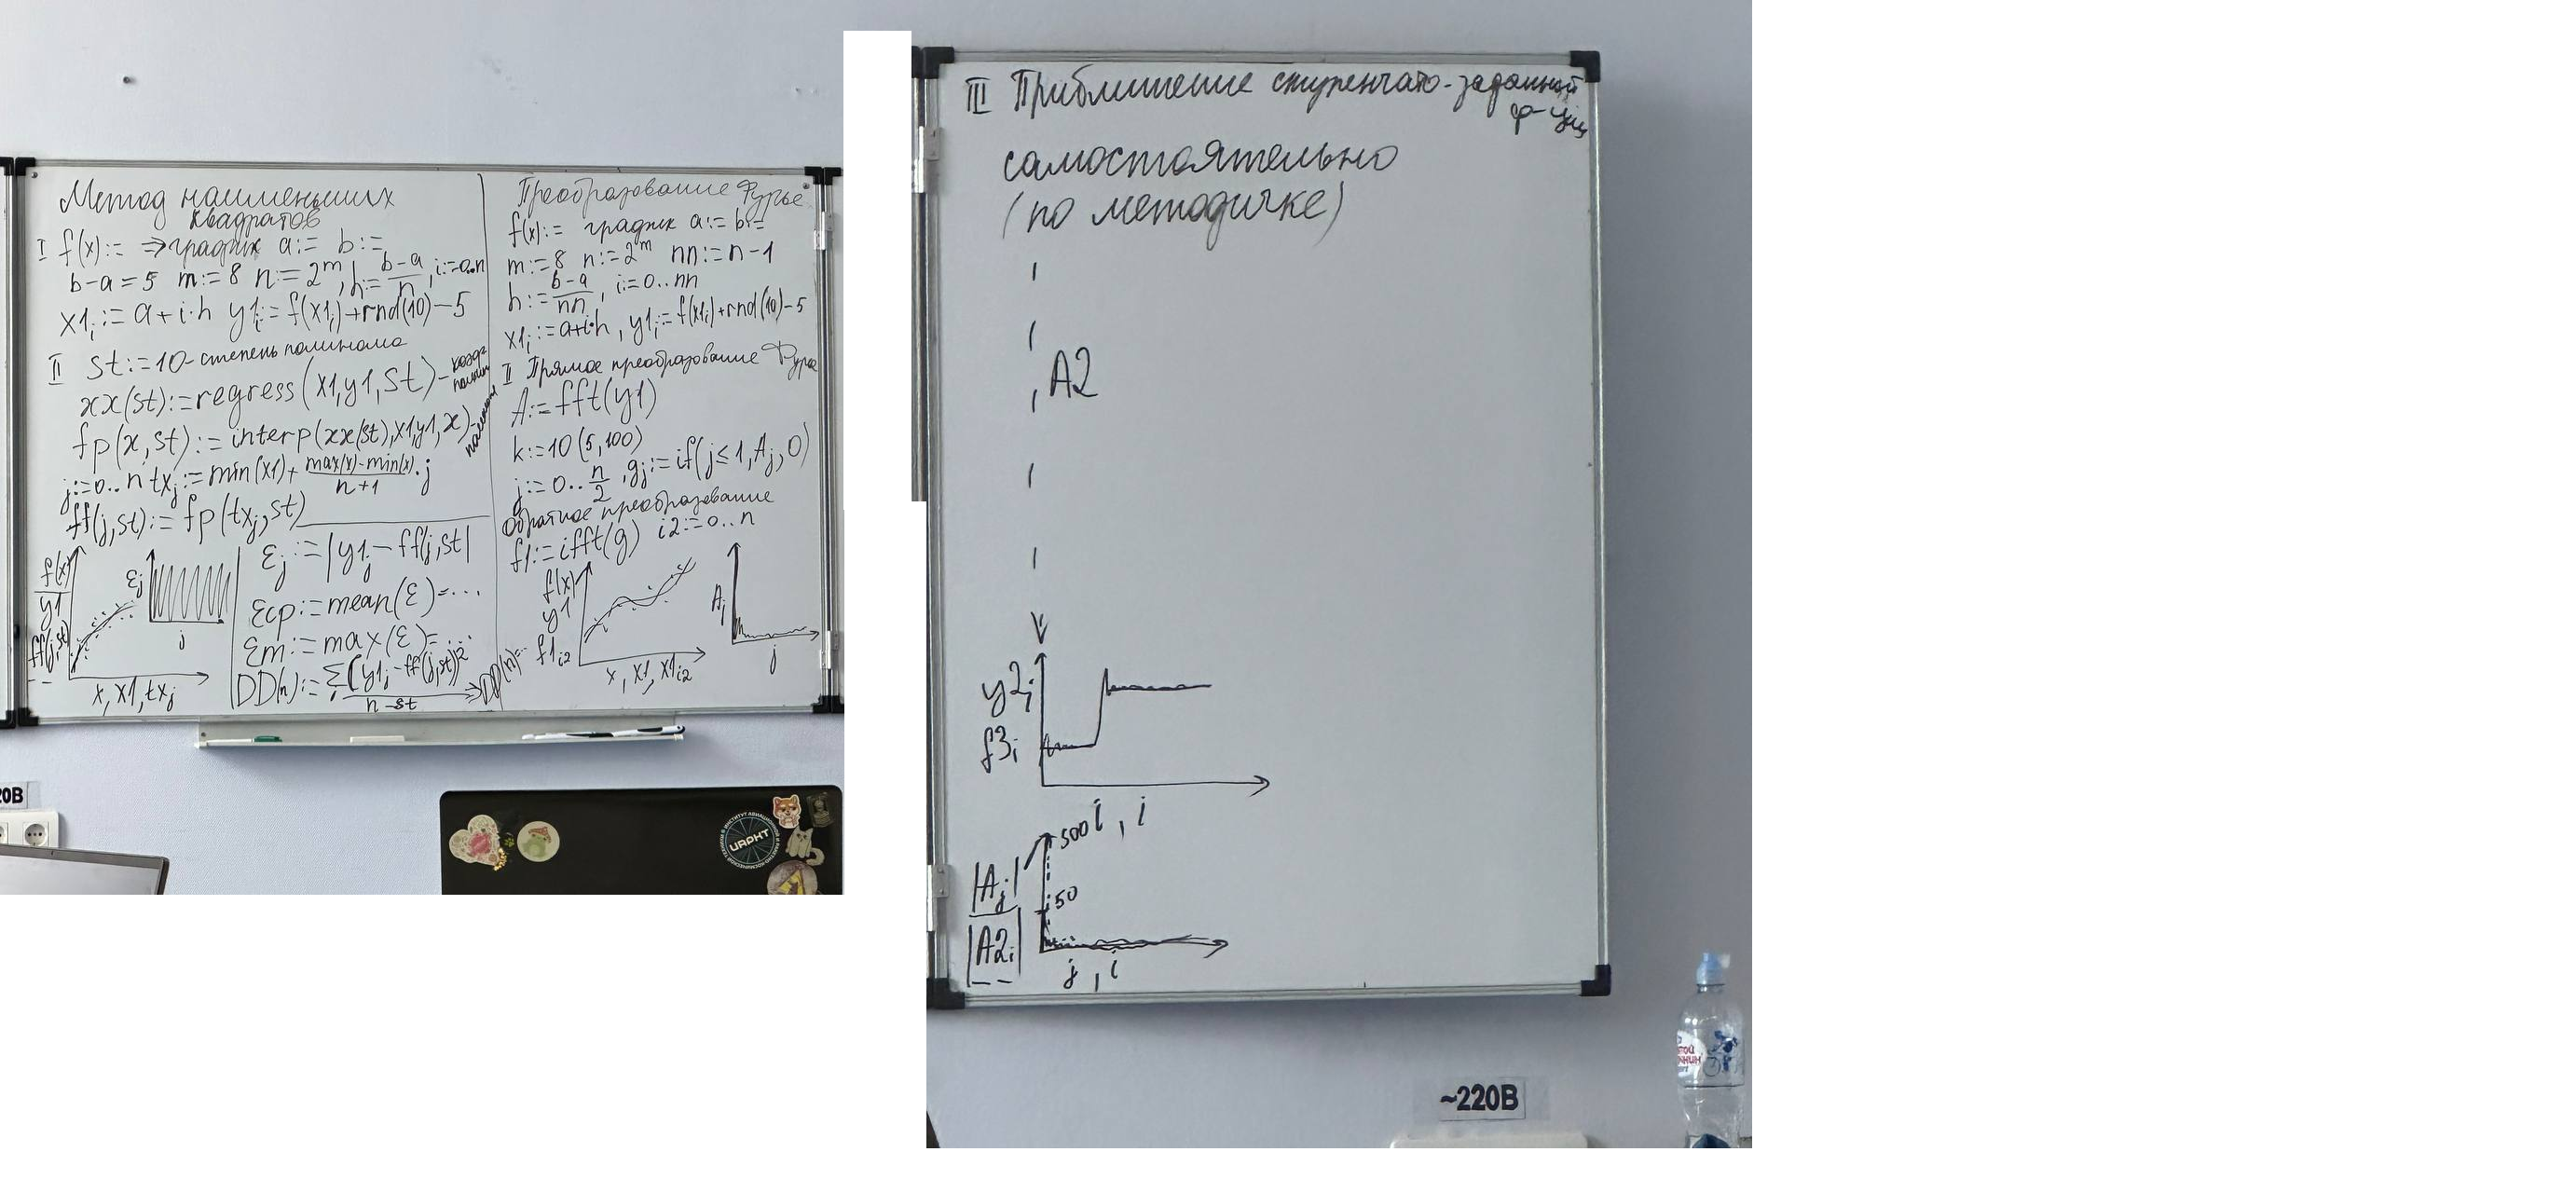 Метод наименьших
квадратов
I f(x):= ⇒ график a:= b:=
b-a=5 m:=8 n:=2^m, h:=\frac{b-a}{n}, i:=0..n
x1_i:=a+i·h y1_i:=f(x1_i)+rnd(10)-5
II st:=10-степень полинома
xx(st):=regress(x1,y1,st)-
fp(x,st):=interp(xx(st),x1,y1,x)-
j:=0..n tx_j:=min(x1)+\frac{max(x)-min(x)}{n+1}·j
ff(j,st):=fp(tx_j,st)
f(x)
y1
ff(j,st)
x, x1, tx_j
ε_j
j
ε_j:=|y1_j-ff(j,st|
εср:=mean(ε)=...
εm:=max(ε)=...
DD(n):=\frac{Σ_j(y1_j-ff(j,st))^2}{n-st} ⇒ DD(n)=..
Преобразование Фурье
f(x):= график a:= b:=
m:=8 n:=2^m nn:=n-1
h:=\frac{b-a}{nn}, i:=0..nn
x1_i:=a+i·h, y1_i:=f(x1_i)+rnd(10)-5
II Прямое преобразование Фурье
A:=fft(y1)
k:=10(5,100)
j:=0..\frac{n}{2}, g_j:=if(j≤1,A_j,0)
Обратное преобразование
f1:=ifft(g) i2:=0..n
f(x)
y1
f1_{i2}
x, x1, x1_{i2}
A_j
j
III Приближение ступенчато-заданной
ф-ции
самостоятельно
(по методичке)
, A2
y2_i
f3_i
i, i
500
50
|A_j|
|A2_i|
j, i
20В
ИАРКТ
~220В